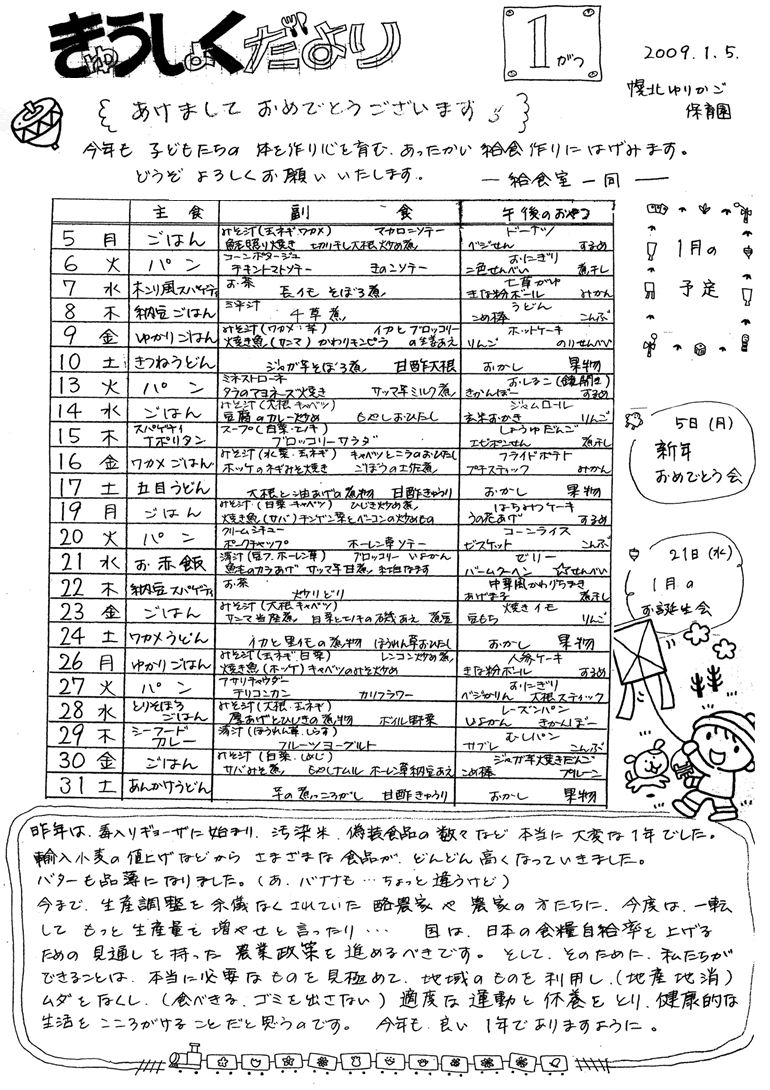 きゅうしょくだより
1がつ
2009.1.5.
幌北ゆりかご
保育園
あけまして おめでとうございます
今年も 子どもたちの 体を作り心を育む、あったかい 給食作りに はげみます。
どうぞ よろしくお願い いたします。 ー給食室一同ー
主食 副食 午後のおやつ
1月の
予定
5 月 ごはん みそ汁(玉ネギ.ワカメ) マカロニソテー ドーナツ
鮭照り焼き 切り干し大根炒め煮 ベジせん するめ
6 火 パン コーンポタージュ おにぎり
チキントマトソテー きのこソテー 二色せんべい 煮干し
7 水 キノコ風スパゲティ お茶 七草がゆ
長イモそぼろ煮 きな粉ボール みかん
8 木 納豆ごはん 三平汁 うどん
千草煮 こめ棒 こんぶ
9 金 ゆかりごはん みそ汁(ワカメ.芋) イカとブロッコリー ホットケーキ
焼き魚(サンマ) かわりキンピラ の生姜あえ りんご のりせんべい
10 土 きつねうどん ジャガ芋そぼろ煮 甘酢大根 おかし 果物
13 火 パン ミネストローネ おしるこ(鏡開き)
タラのマヨネーズ焼き サツマ芋ミルク煮 きかんぼー するめ
14 水 ごはん みそ汁(大根.キャベツ) ジャムロール
豆腐のカレー炒め もやしおひたし 玄米おかき りんご
15 木 スパゲティ スープ(白菜・エノキ) しょうゆだんご
ナポリタン ブロッコリーサラダ エビポンせん 煮干し
16 金 ワカメごはん みそ汁(水菜.玉ネギ) キャベツとニラのおひたし フライドポテト
ホッケのネギみそ焼き ごぼうの土佐煮 プチスティック みかん
17 土 五目うどん 大根と油あげの煮物 甘酢きゅうり おかし 果物
19 月 ごはん みそ汁(白菜.キャベツ) ひじき炒め煮 はちみつケーキ
焼き魚(サバ) チンゲン菜とベーコンの炒めもの うの花あげ するめ
20 火 パン クリームシチュー コーンライス
ポークチャップ ホーレン草ソテー ビスケット こんぶ
21 水 お赤飯 清汁(豆フ.ホーレン草) ブロッコリー いよかん ゼリー
魚のカラあげ サツマ芋甘煮 紅白なます バームクーヘン ☆せんべい
22 木 納豆スパゲティ お茶 中華風かわりちまき
炒りどり あげ玉子 煮干し
23 金 ごはん みそ汁(大根.キャベツ) 焼きイモ
サンマ当座煮 白菜とエノキの磯あえ 煮豆 豆もち りんご
24 土 ワカメうどん イカと里イモの煮物 ほうれん草おひたし おかし 果物
26 月 ゆかりごはん みそ汁(玉ネギ.白菜) レンコン炒め煮 人参ケーキ
焼き魚(ホッケ) キャベツのみそ炒め きな粉ボール するめ
27 火 パン アサリチャウダー おにぎり
チリコンカン カリフラワー ベジかりん 大根スティック
28 水 とりそぼろ みそ汁(大根.玉ネギ) レーズンパン
ごはん 厚あげとひじきの煮物 ボイル野菜 いよかん きかんぼー
29 木 シーフード 清汁(ほうれん草.しらす) むしパン
カレー フルーツヨーグルト サブレ こんぶ
30 金 ごはん みそ汁(白菜.しめじ) ジャガ芋焼きだんご
サバみそ煮 もやしナムル ホーレン草納豆あえ こめ棒 プルーン
31 土 あんかけうどん 芋の煮っころがし 甘酢きゅうり おかし 果物
5日(月)
新年
おめでとう会
21日(水)
1月の
お誕生会
昨年は、毒入りギョーザに始まり、汚染米、偽装食品の数々など 本当に 大変な1年でした。
輸入小麦の値上げなどから さまざまな食品が、どんどん高くなっていきました。
バターも品薄になりました。(あ、バナナも…ちょっと違うけど)
今まで、生産調整を余儀なくされていた 酪農家や 農家の方たちに、今度は、一転
して もっと生産量を増やせと言ったり… 国は、日本の食糧自給率を上げる
ための見通しを持った 農業政策を進めるべきです。そして、そのために、私たちが
できることは、本当に必要なものを見極めて、地域のものを利用し、(地産地消)
ムダをなくし、(食べきる、ゴミを出さない) 適度な運動と休養をとり、健康的な
生活を こころがけることだと思うのです。 今年も 良い1年でありますように。